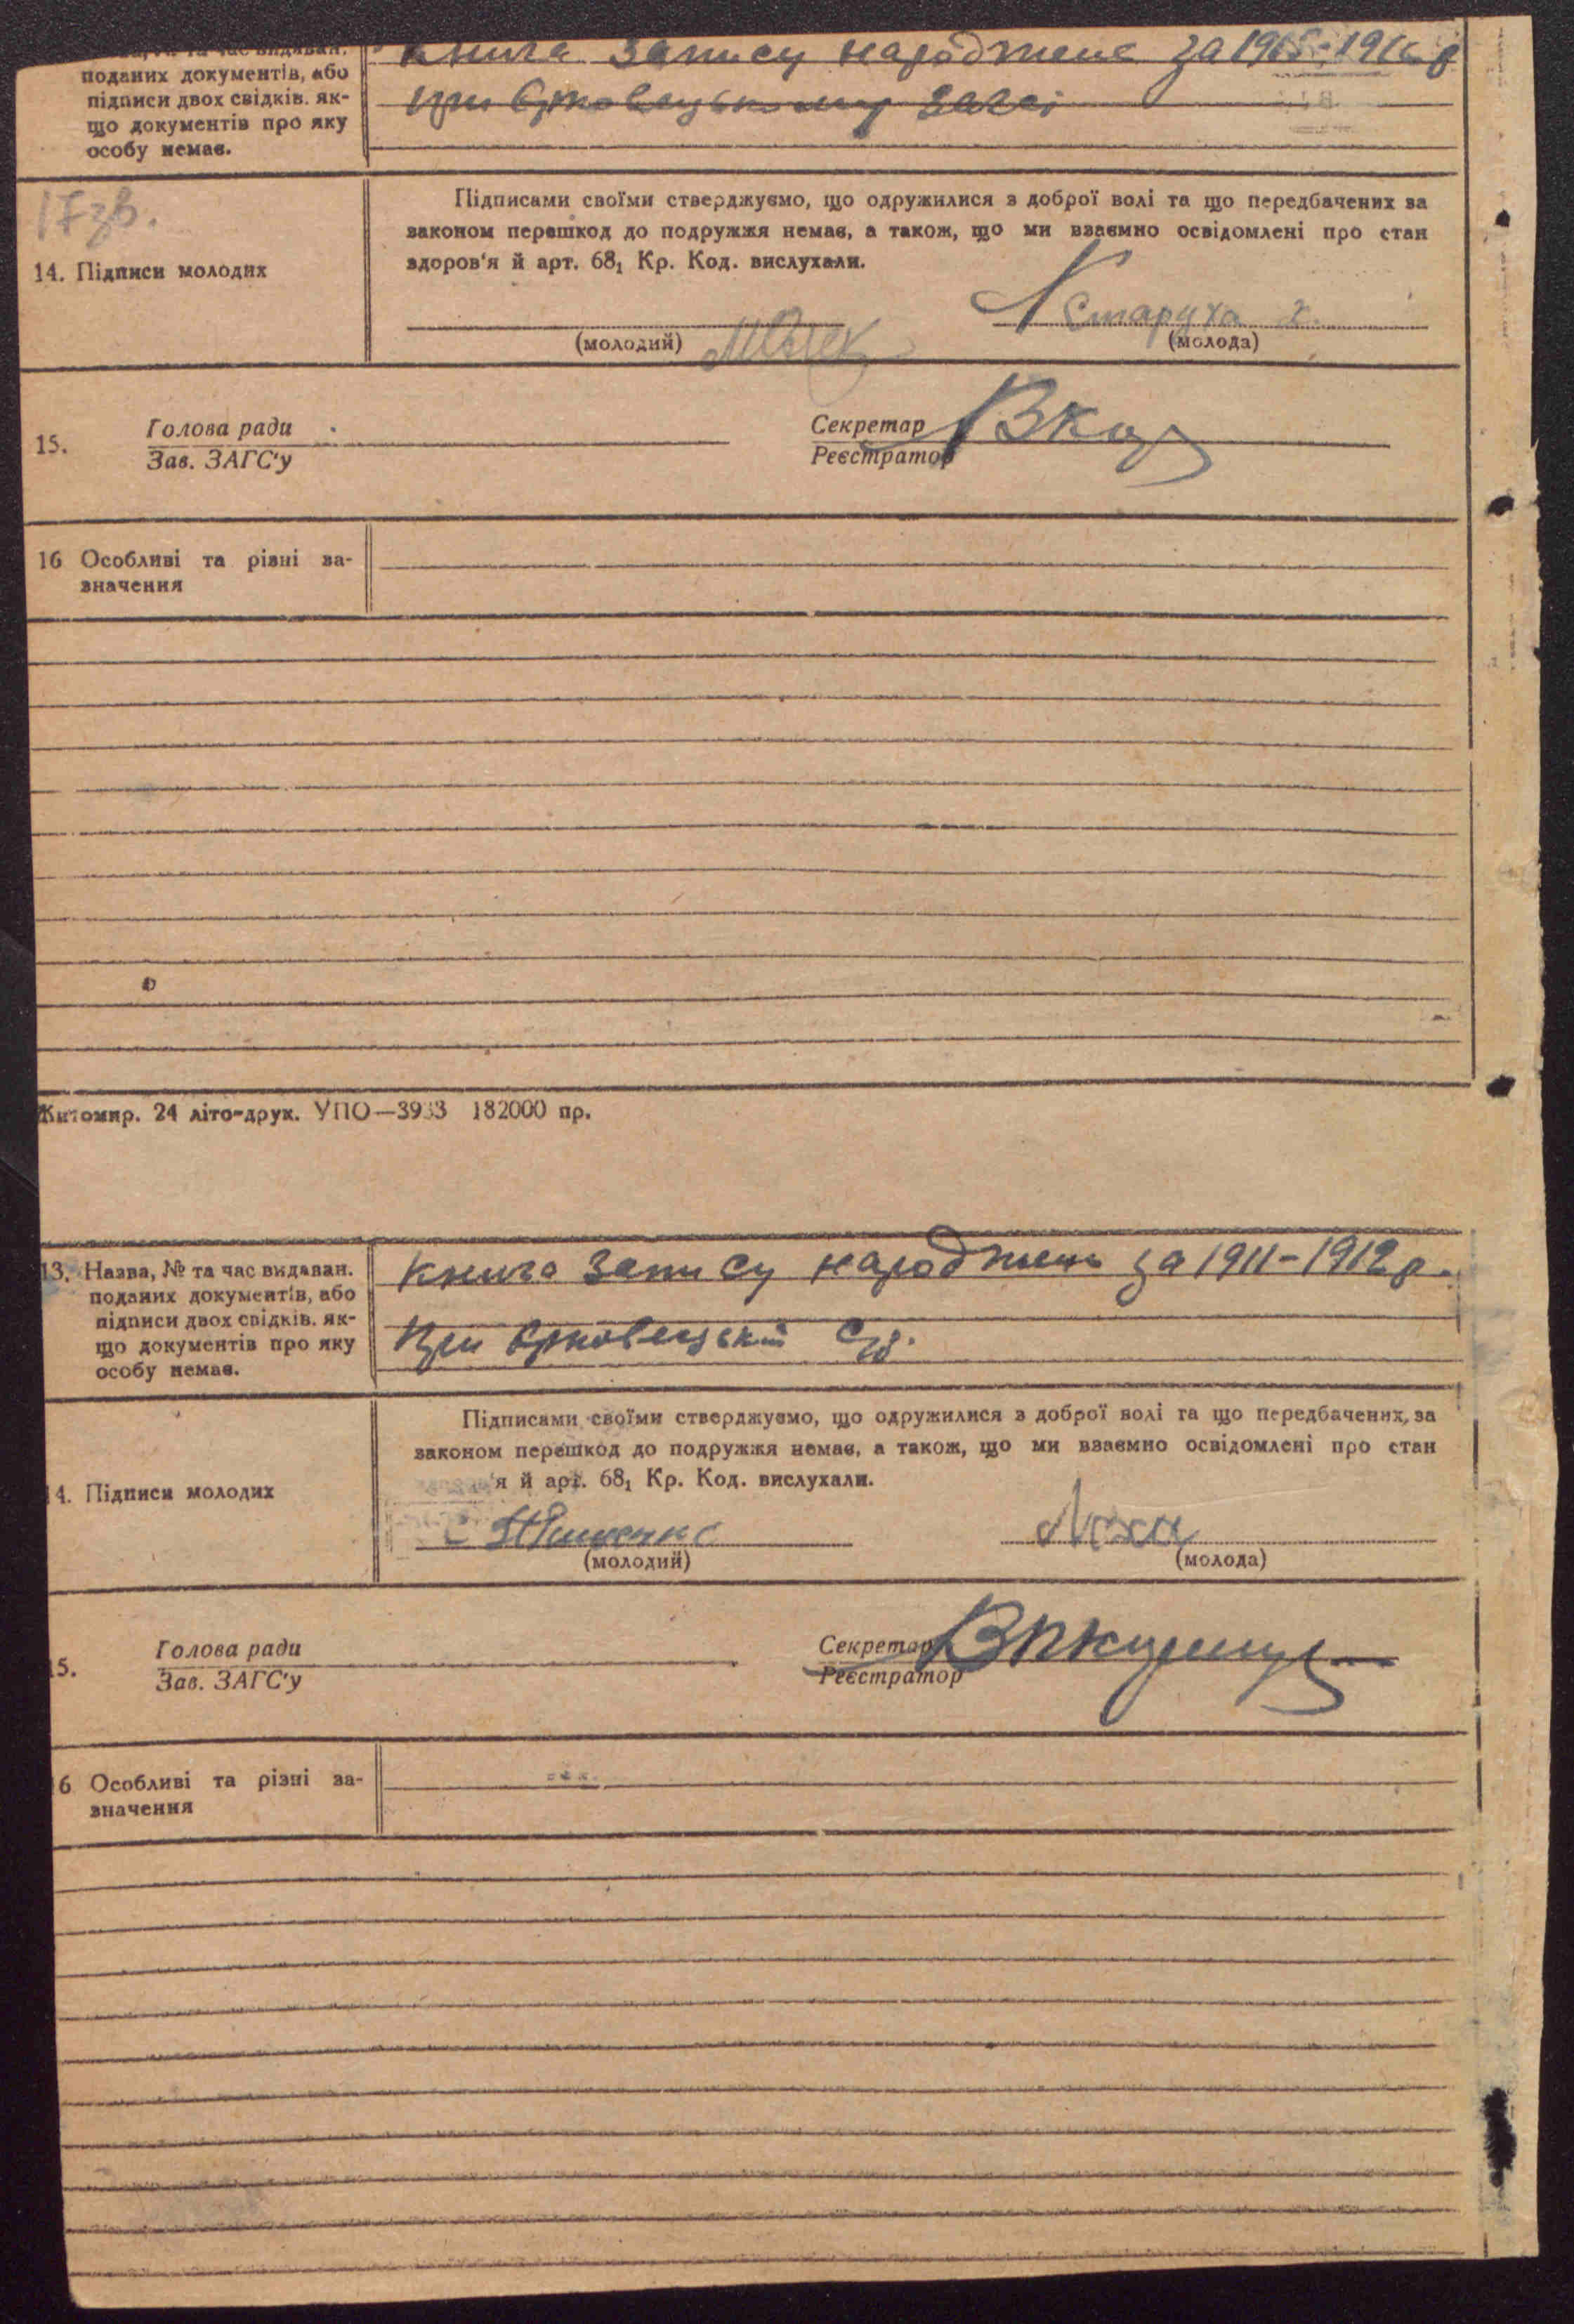 та час видаван.
поданих документів, або
підписи двох свідків. як-
що документів про яку
особу немає.
Книга запису народжене за 1915-1916 р
при загсі
17зв.
14. Підписи молодих
Підписами своїми стверджуємо, що одружилися з доброї волі та що передбачених за
законом перешкод до подружжя немає, а також, що ми взаємно освідомлені про стан
здоров'я й арт. 68₁ Кр. Код. вислухали.
Старуха х.
(молодий) (молода)
15. Голова ради Секретар
Зав. ЗАГС'у Реєстратор
16 Особливі та рівні за-
значення
Житомир. 24 літо-друк. УПО—3933 182000 пр.
13. Назва, № та час видаван.
поданих документів, або
підписи двох свідків. як-
що документів про яку
особу немає.
Книга запису народжень за 1911-1912 р.
При
4. Підписи молодих
Підписами своїми стверджуємо, що одружилися з доброї волі та що передбачених, за
законом перешкод до подружжя немає, а також, що ми взаємно освідомлені про стан
'я й арт. 68₁ Кр. Код. вислухали.
(молодий) (молода)
5. Голова ради Секретар
Зав. ЗАГС'у Реєстратор
6 Особливі та різні за-
значення